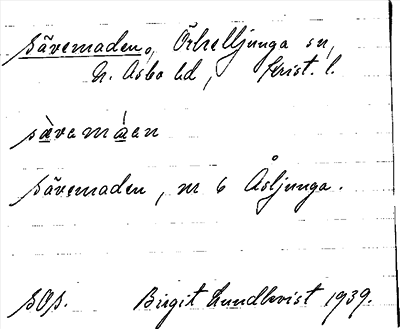 Sävemaden, Örkelljunga sn,
N. Åsbo hd, Krist. l.
sä̀vamá̀an
Sävemaden, nr 6 Åsljunga.
sOs. Birgit Lundkvist 1939.